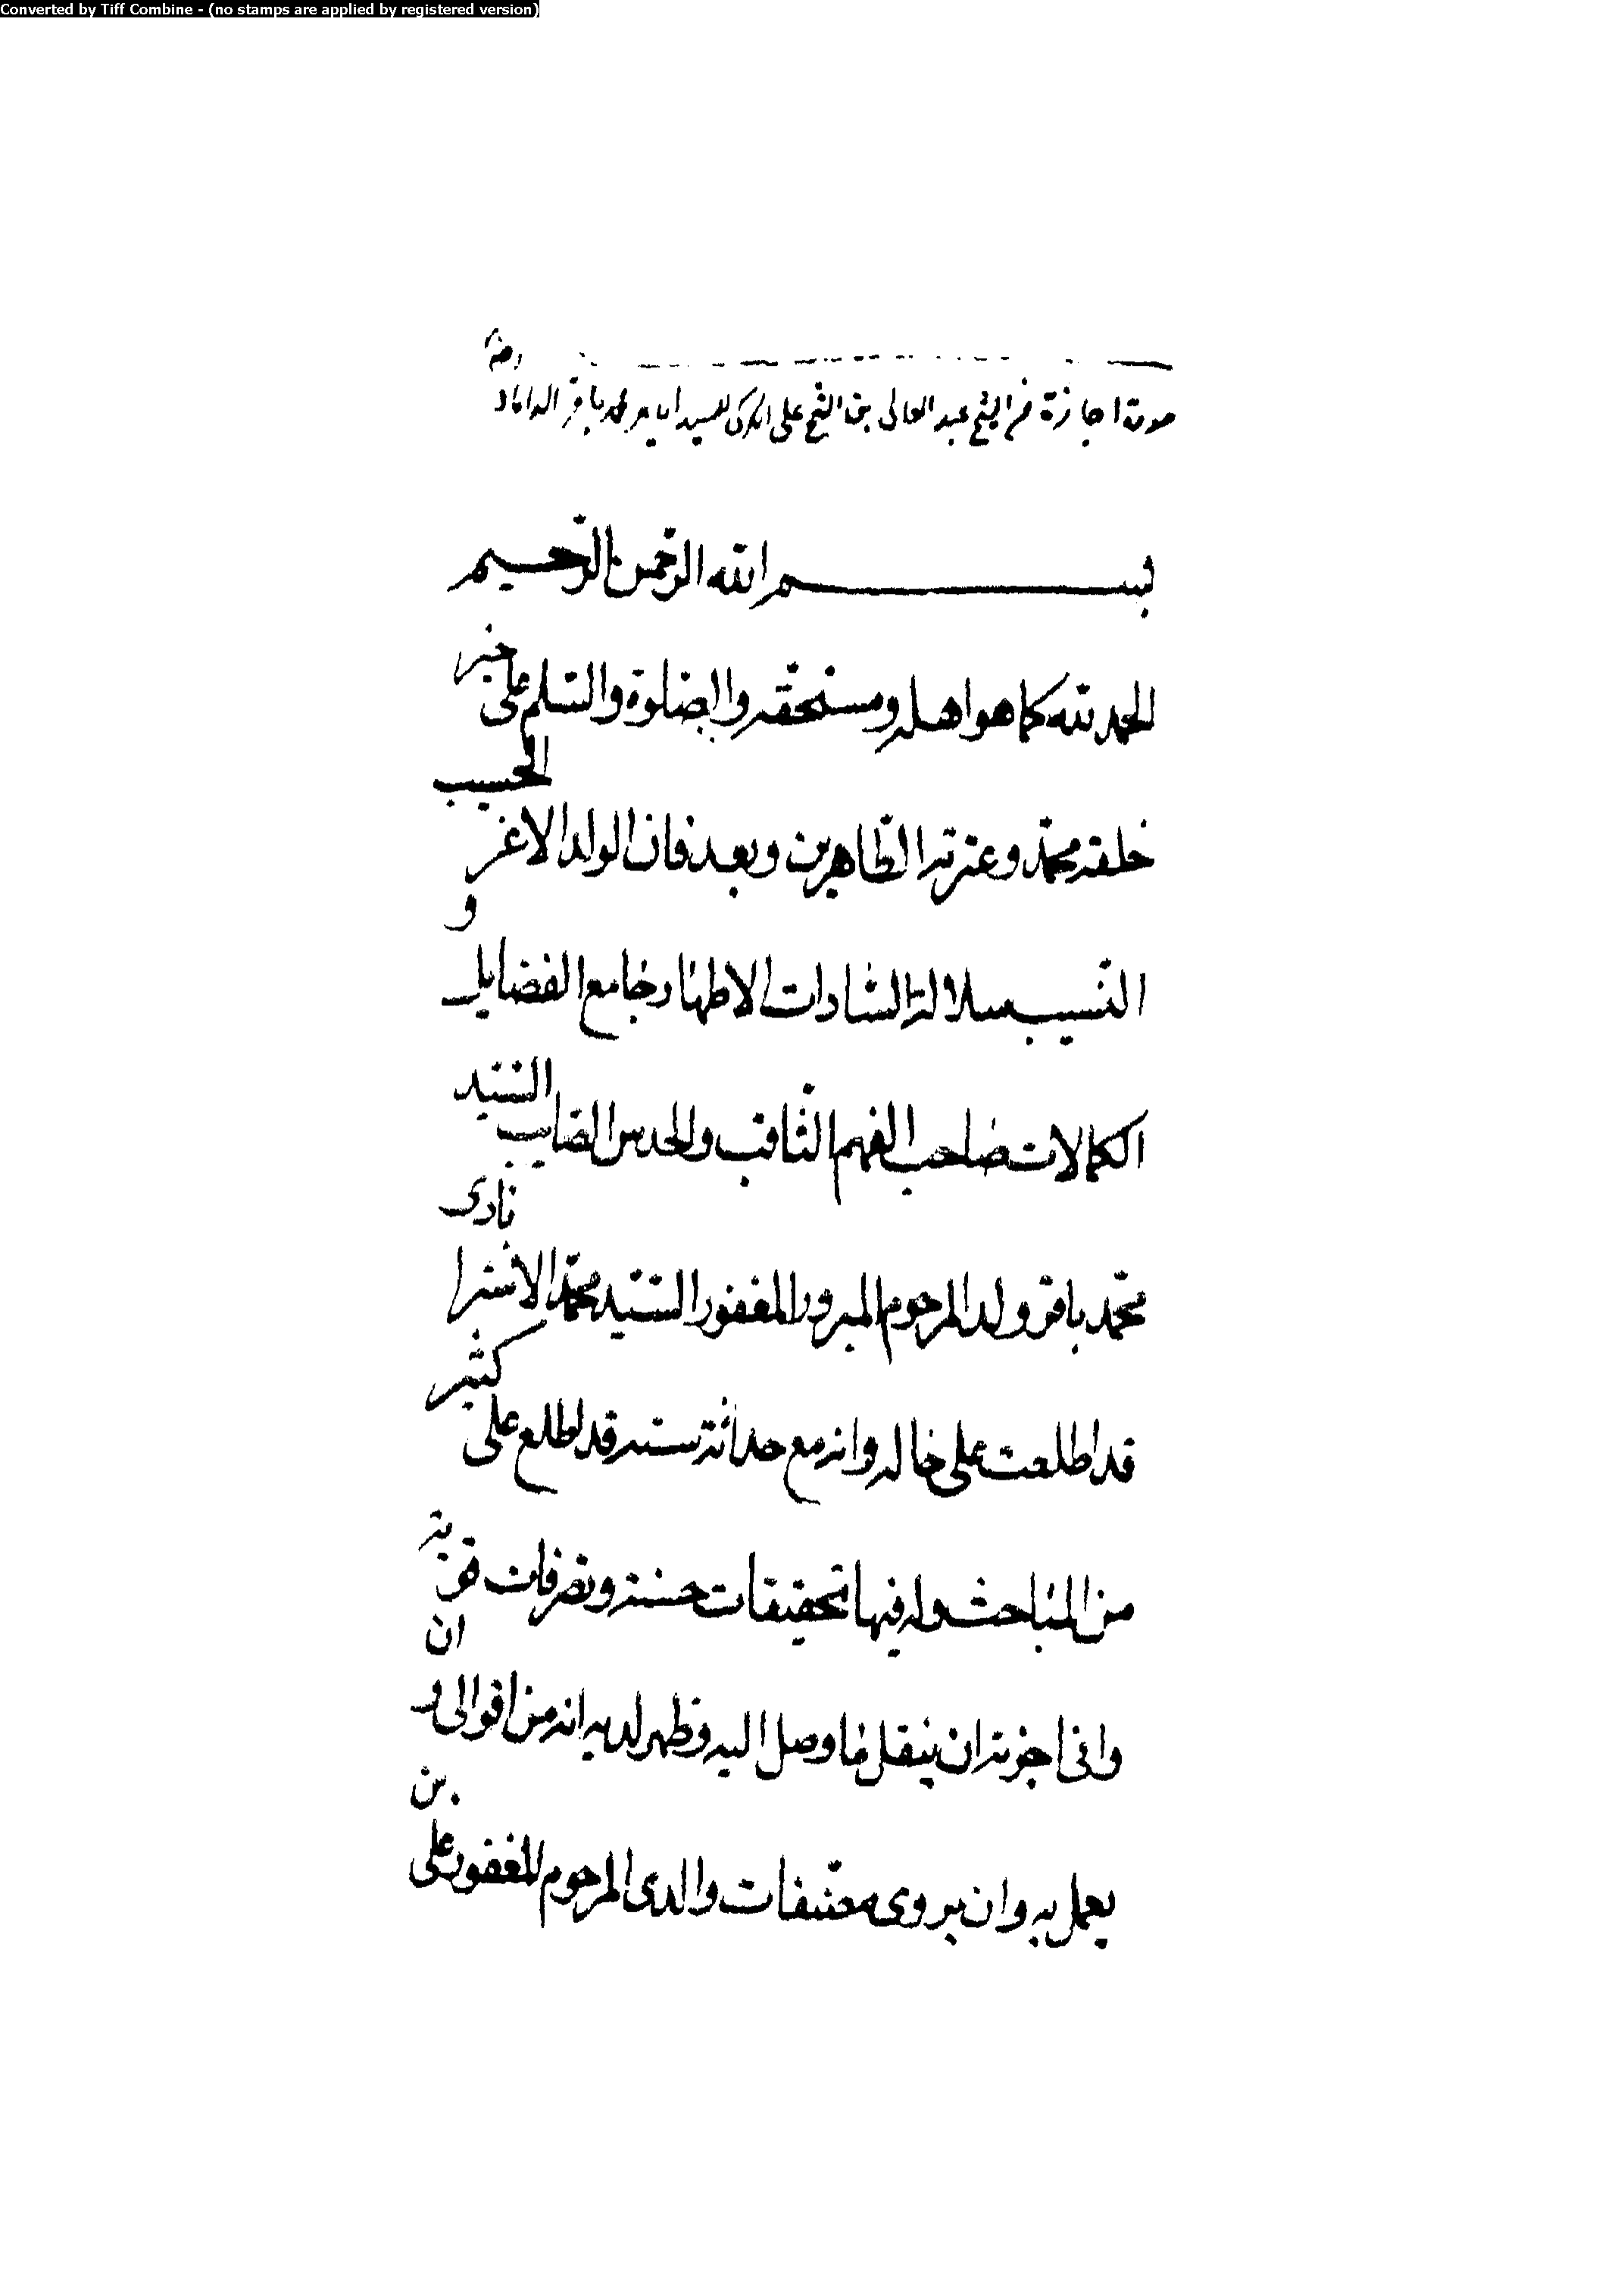 Converted by Tiff Combine - (no stamps are applied by registered version)
صورة اجازة من الشيخ عبد العالى بن الشيخ على الكركى للسيد محمد باقر الداماد رضه
بسم الله الرحمن الرحيم
الحمد لله كما هو اهله ومستحقه والصلوة والسلم على خير
خلقه محمد وعترته الطاهرين وبعد فان الولد الاعز الحسيب
النسيب سلالة السادات الاطهار جامع الفضايل و
الكمالات صاحب الفهم الثاقب والحدس الصايب السيد
محمد باقر ولد المرحوم المبرور المغفور السيد محمد الاسترابادى
قد اطلعت على حاله وانه مع حداثة سنه قد اطلع على كثير
من المباحث وله فيها تحقيقات حسنة وتصرفات قوية
وانى اجزته ان ينقل ما وصل اليه وظهر لديه انه من اقوالى و ان
يعمل به وان يروى مصنفات والدى المرحوم المغفور على بن